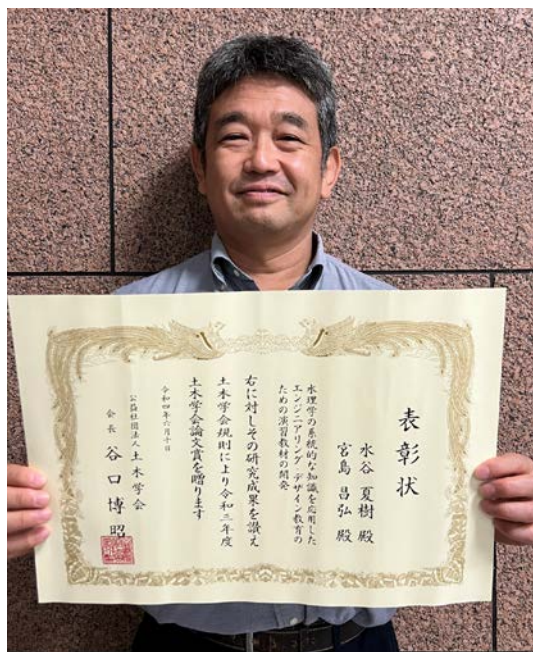 表彰状
水谷 夏樹 殿
宮島 昌弘 殿
水理学の系統的な知識を応用した
エンジニアリング・デザイン教育の
ための演習教材の開発
右に対しその研究成果を讃え
土木学会規則により令和三年度
土木学会論文賞を贈ります
令和四年六月十日
公益社団法人土木学会
会長 谷口博昭